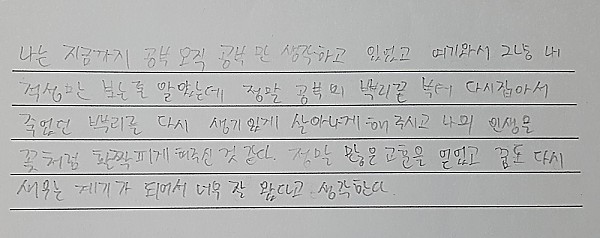 나는 지금까지 공부 오직 공부만 생각하고 있었고 여기와서 그냥 내
적성만 보는줄 알았는데 정말 공부의 뿌리끝 부터 다시잡아서
죽었던 뿌리를 다시 생기있게 살아나게 해주시고 나의 인생을
꽃처럼 활짝피게 해주신 것 같다. 정말 많은 교훈을 얻었고 꿈도 다시
세우는 계기가 되어서 너무 잘 왔다고 생각한다.